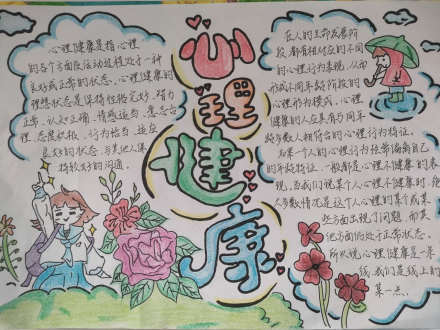 心理健康
心理健康是指心理
的各个方面及活动过程处于一种
良好或正常的状态。心理健康的
理想状态是保持性格完好、智力
正常、认知正确、情感适当、意志合
理、态度积极、行为恰当、适应
良好的状态。与其他人保
持较好的沟通。
在人的生命发展阶
段,都有相对应的不同
的心理行为表现,从而
形成不同年龄阶段的
心理行为模式。心理
健康的人应具有与年
龄多数人相符合的心理行为特征。
如果一个人的心理行为经常偏离自己
的年龄特征,一般都是心理不健康的表
现。当我们说某个人心理不健康时,绝
大多数情况是这个人心理的某个或某
些方面出现了问题,而其
他方面仍处于正常状态。
所以说,心理健康是一条
线,我们是线上的
某一点。